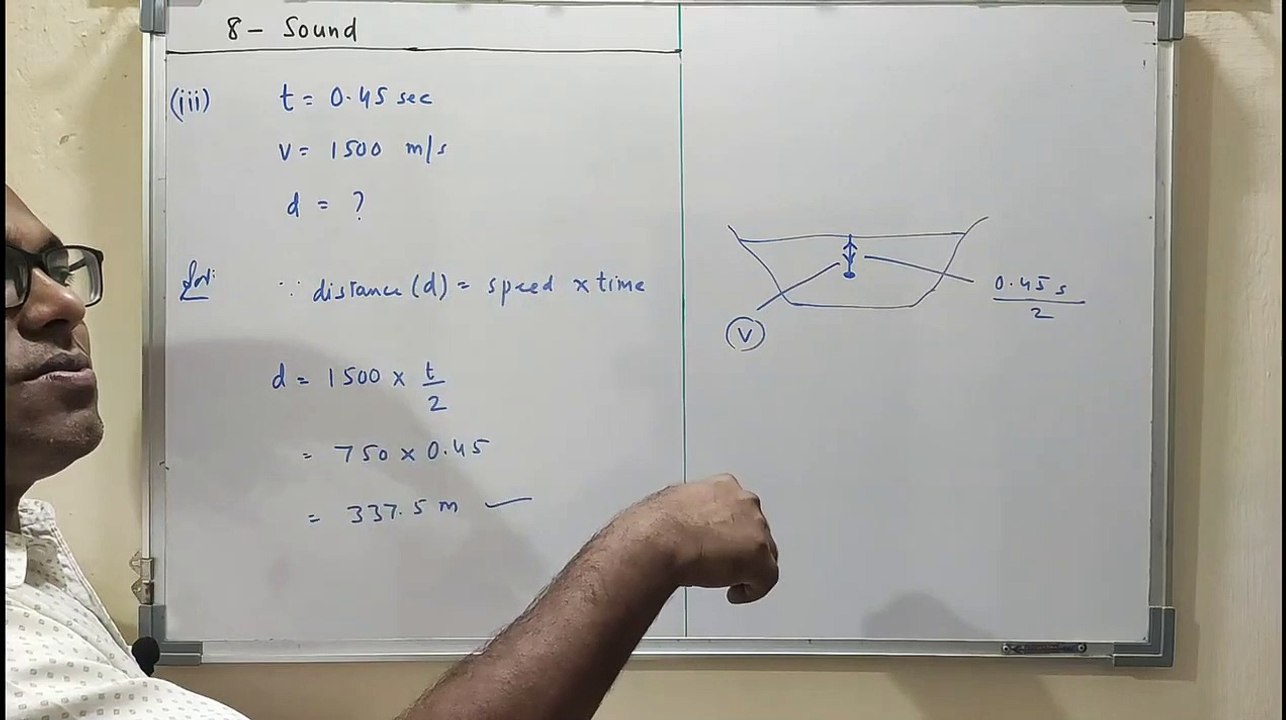 8 - Sound
(iii) t = 0.45 sec
v = 1500 m/s
d = ?
Sol: ∵ distance (d) = speed x time
d = 1500 x t/2
= 750 x 0.45
= 337.5 m
0.45 s
2
V